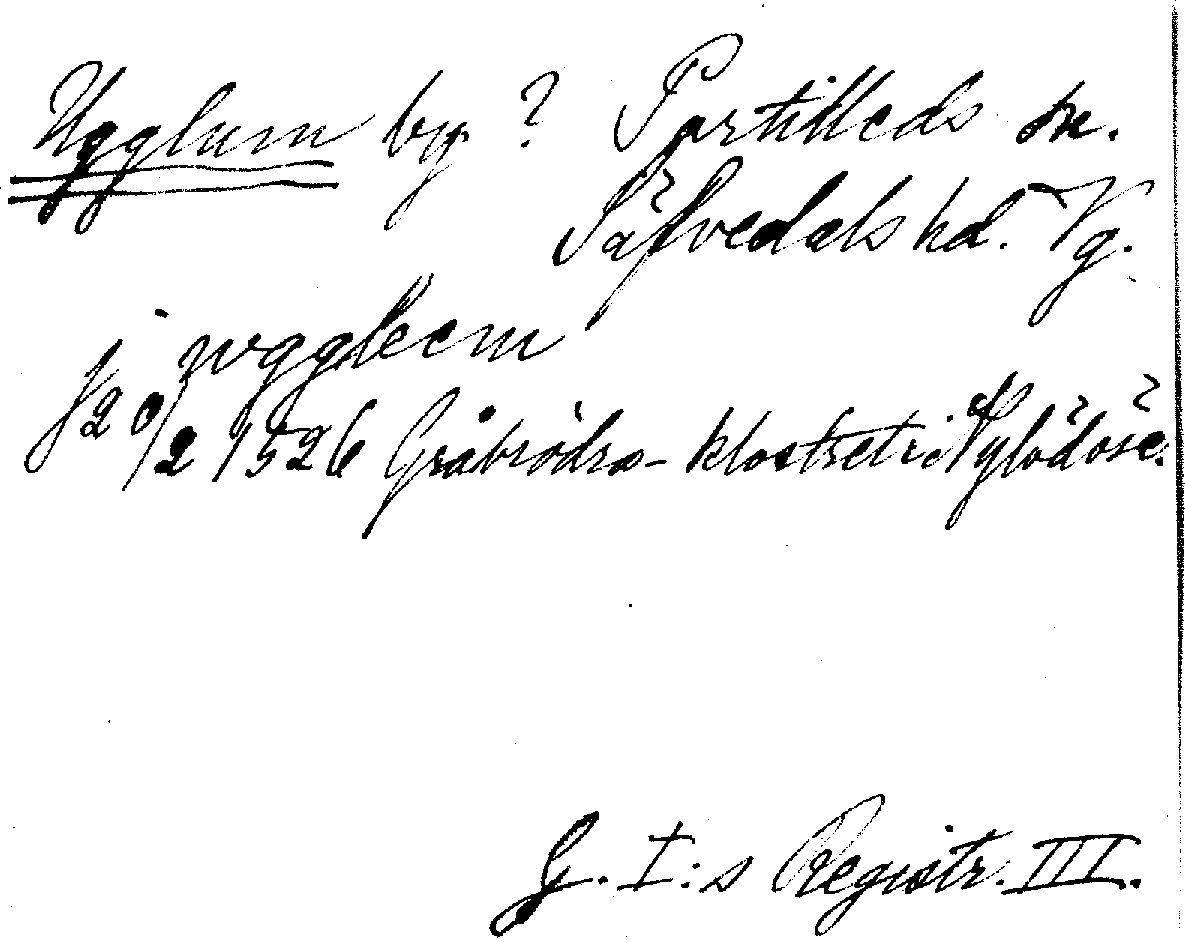 Ugglum by? Partilleds sn.
Säfvedals hd. Vg.
j wggleem
20/2 1526 Gråbrödra-klostret i Nylödöse.
G. I:s Registr. III.